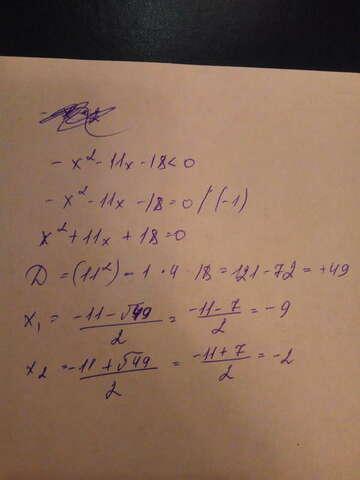 - x² - 11x - 18 < 0
- x² - 11x - 18 = 0 / (-1)
x² + 11x + 18 = 0
D = (11²) - 1 · 4 · 18 = 121 - 72 = +49
x₁ = (-11 - √49)/2 = (-11 - 7)/2 = -9
x₂ = (-11 + √49)/2 = (-11 + 7)/2 = -2